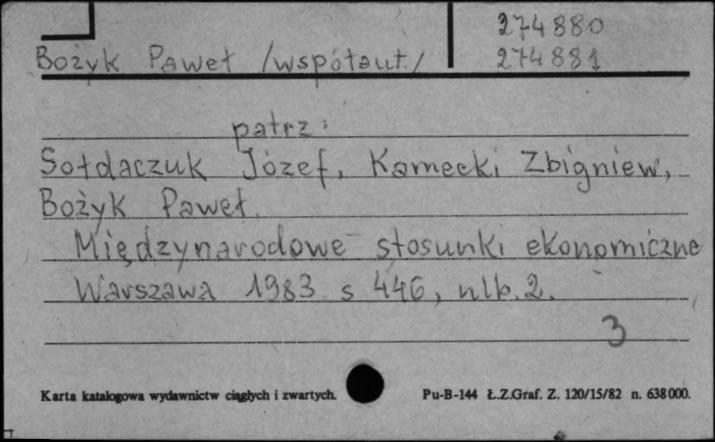 274880
Bożyk Paweł /współaut./ 274881
patrz:
Sołdaczuk Józef, Kamecki Zbigniew,
Bożyk Paweł.
Międzynarodowe stosunki ekonomiczne
Warszawa 1983 s 446, nlb. 2.
3
Karta katalogowa wydawnictw ciągłych i zwartych. Pu-B-144 Ł.Z.Graf. Z. 120/15/82 n. 638000.